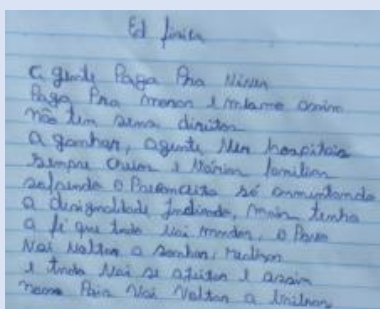 Ed fisica
A gente Paga Pra Viver
Paga Pra morar e mesmo assim
não tem seus direitos
a ganhar, agente ver hospitais
sempre cheios e Várias familias
sofrendo o Preconceito só aumentando
a desigualdade, mais tenha
a fé que tudo Vai mudar, o Povo
Vai Voltar a sonhar,
e tudo Vai se ajeitar e assim
nosso Pais Vai Voltar a brilhar